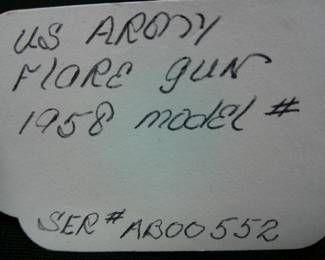 US ARMY
FLARE GUN
1958 MODEL #
SER # AB00552